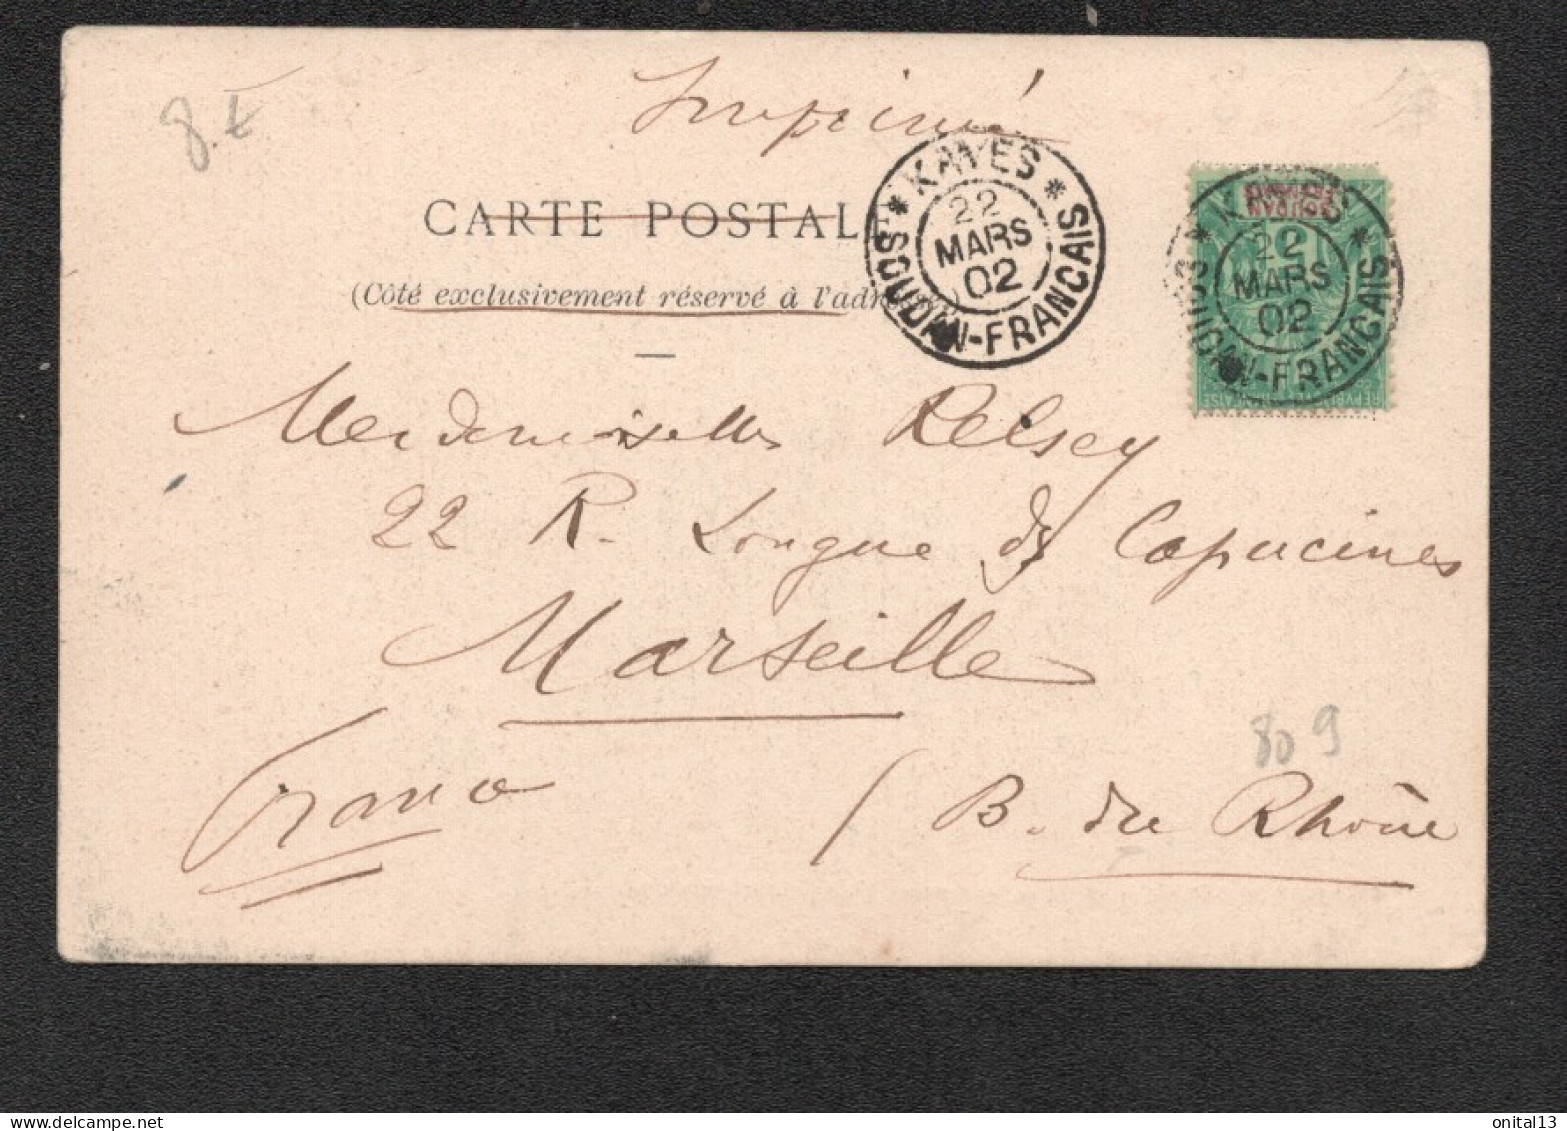 8.
Imprimé
CARTE POSTALE
(Côté exclusivement réservé à l'adresse)
KAYES
22
MARS
02
SOUDAN-FRANCAIS
KAYES
22
MARS
02
SOUDAN-FRANCAIS
Mesdemoiselles Relsey
22 R. Longue des Capucines
Marseille
France
(B. du Rhône
809
onital13